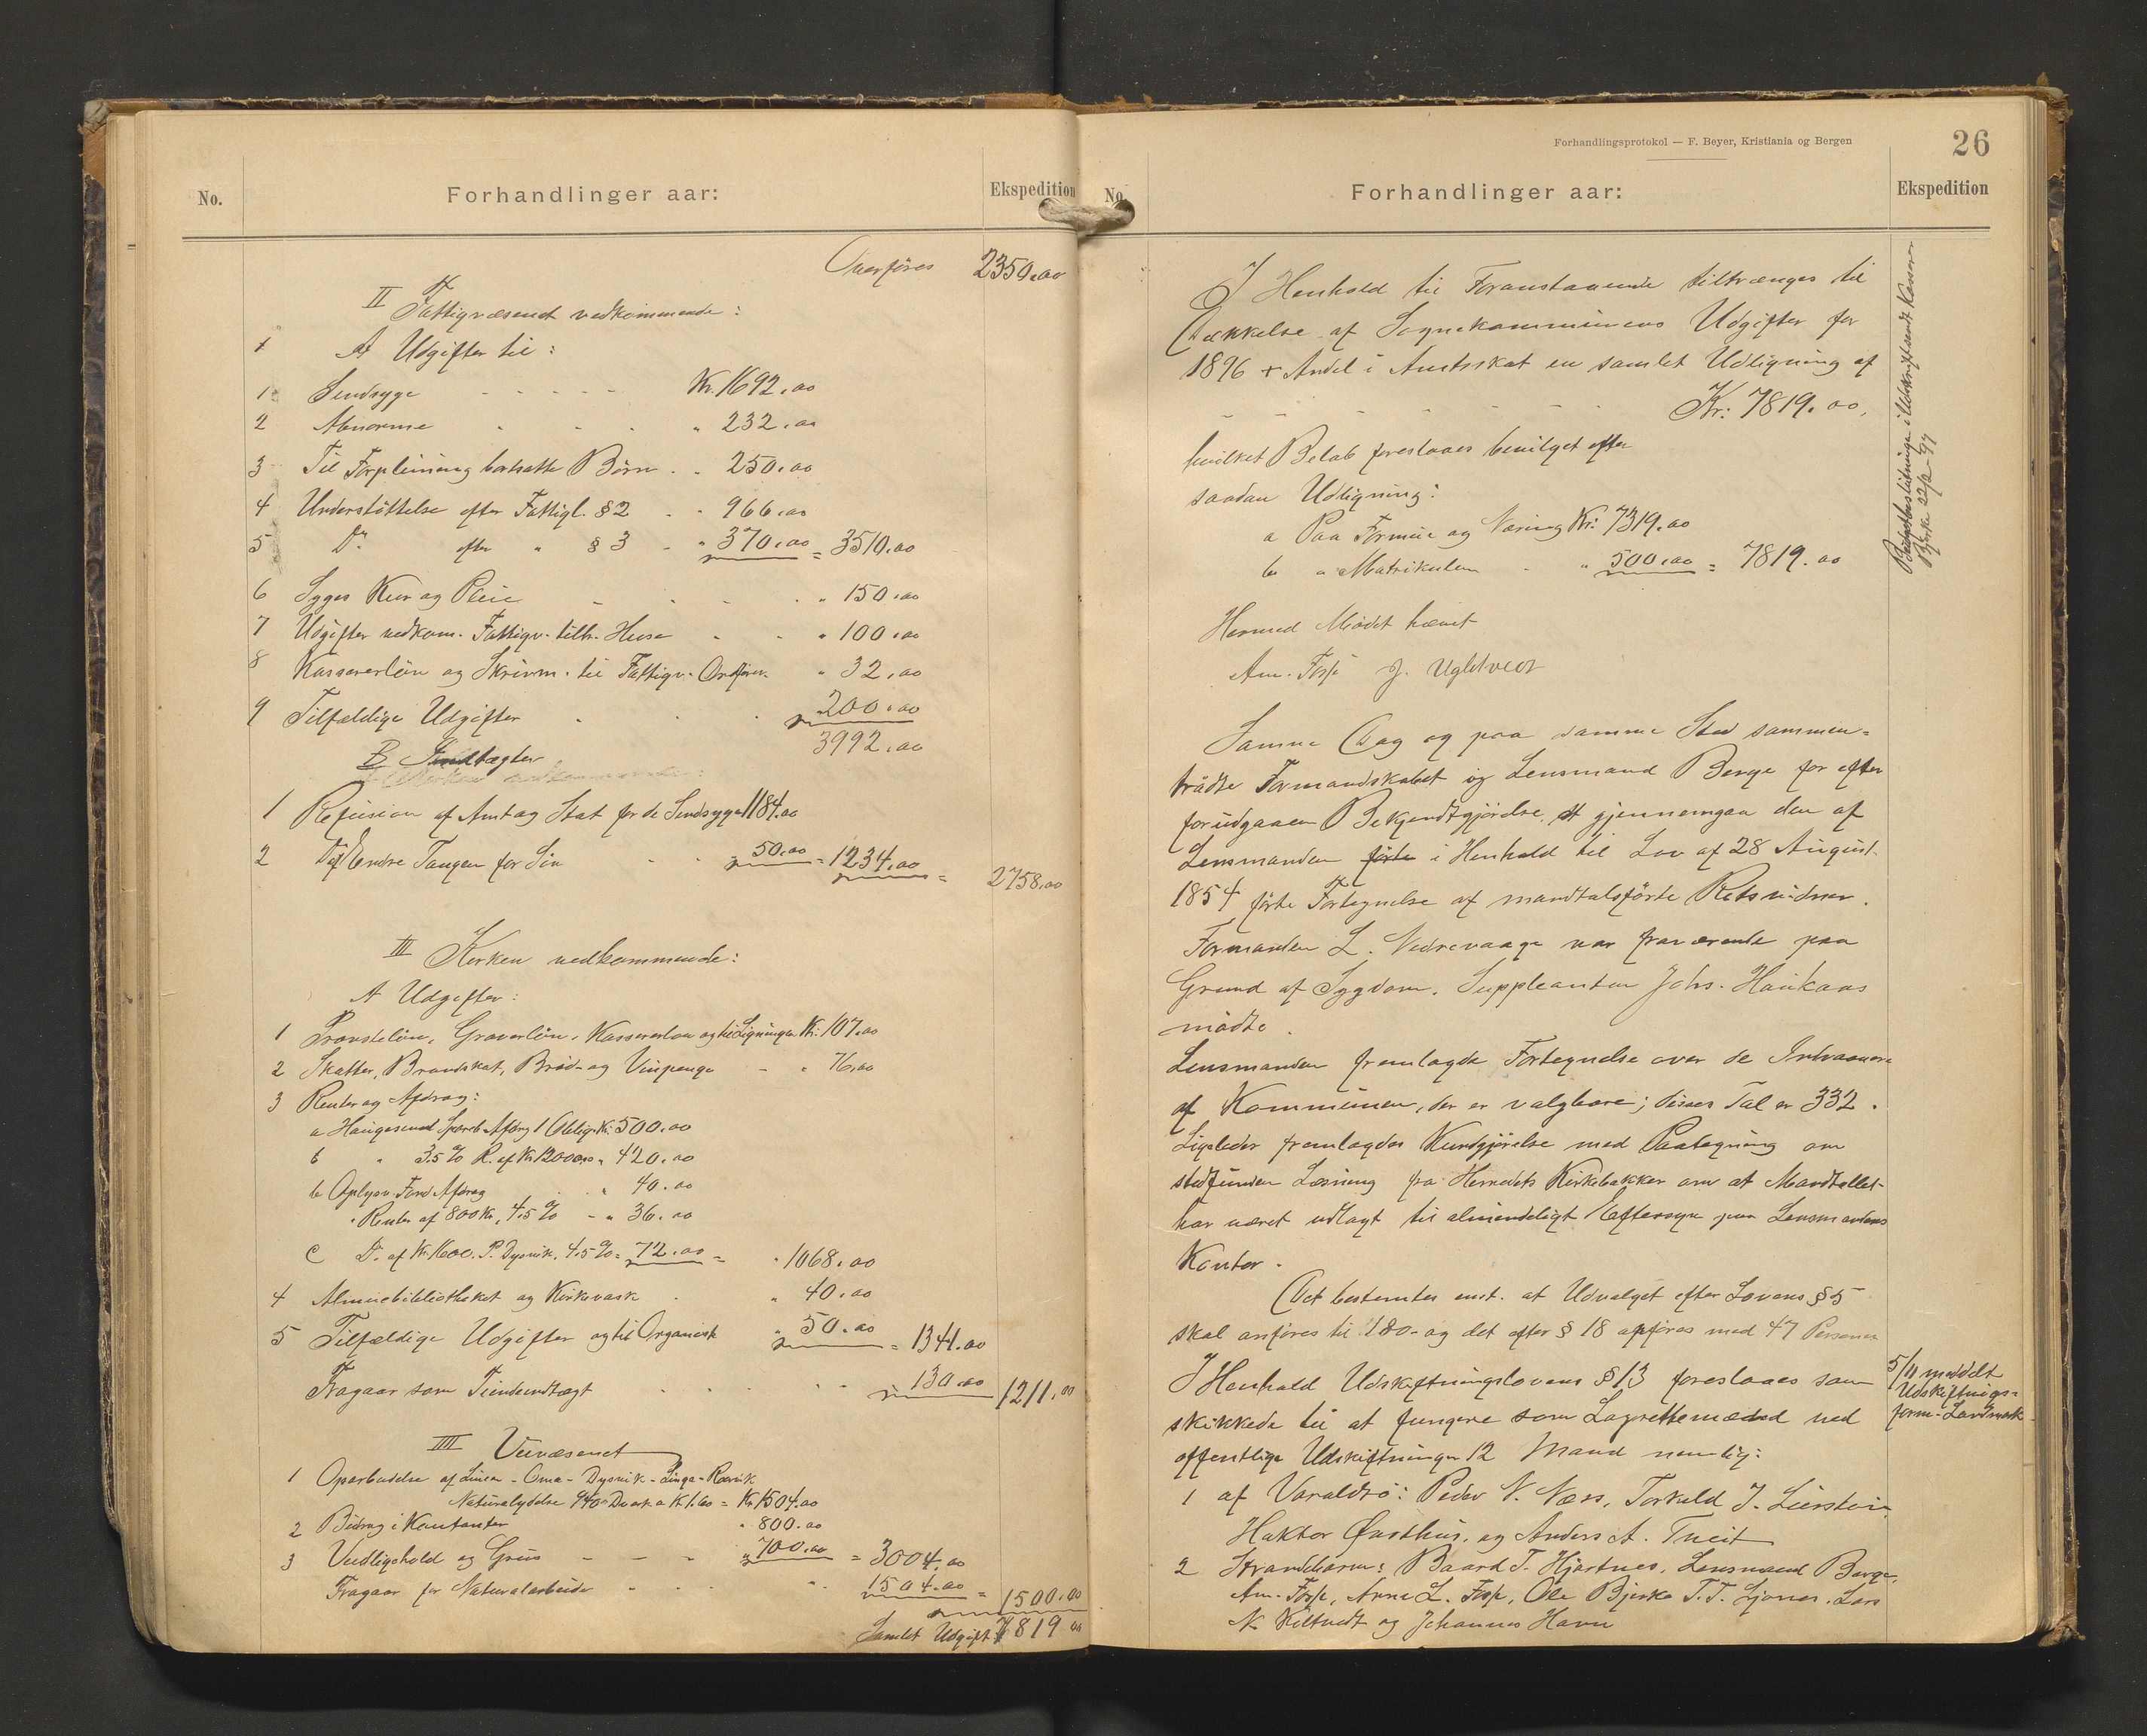 No. Forhandlinger aar: Ekspedition
Overføres 2350.00
II Fattigvæsenet vedkommende:
A Udgifter til:
1 Sindsyge - - - - Kr. 1692.00
2 Abnorme " 232.00
3 Til Forpleining bortsatte Børn " 250.00
4 Understøttelse efter Fattigl. § 2 " 966.00
5 Do efter " § 3 - " 370.00 = 3510.00
6 Syges Kur og Pleie - " 150.00
7 Udgifter vedkom. Fattigv. tilh. Huse " 100.00
8 Kassererløn og Skrivm. til Fattigv. Ordfører " 32.00
9 Tilfældige Udgifter 200.00
3992.00
B Indtægter
1 Refusion af Amt og Stat for de Sindsyge 1184.00
2 Do af Endre Tangen for Sin " 50.00 = 1234.00 =
2758.00
III Kirken vedkommende:
A Udgifter:
1 Provsteløn, Graverløn, Kassererløn og til Ligningen Kr. 107.00
2 Skatter, Brandskat, Brød- og Vinpenge - " 76.00
3 Renter og Afdrag:
a Haugesund Spareb. Afdrg 1 Oblig. Kr. 500.00
b " 3.5 % R. af Kr. 12000.00 " 420.00
b Oplysn. Fond Afdrag " 40.00
" Renter af 800 Kr, 4.5 % - " 36.00
c Do. af Kr. 1600. P. Dysvik, 4.5 % = 72.00 = " 1068.00
4 Almuebibliotheket og Kirkevask " 40.00
5 Tilfældige Udgifter og til Organist " 50.00 = 1341.00
Fragaar som Tiendeindtægt 130.00 1211.00
IIII Veivæsenet
1 Oparbeidelse af Linien - Oma - Dysvik - Linga - Røsvik
Naturalydelse 940 Dverk a Kr. 1.60 = Kr. 1504.00
2 Bidrag i Kontanter " 800.00
3 Vedligehold og Grus - - - " 700.00 = 3004.00
Fragaar for Naturalarbeide 1504.00 = 1500.00
Samlet Udgift 7819 00
Forhandlingsprotokol — F. Beyer, Kristiania og Bergen
26
No. Forhandlinger aar: Ekspedition
I Henhold til Foranstaaende tiltrænges til
Dækkelse af Sognekommunens Udgifter for
1896 + Andel i Amtsskat en samlet Udligning af
Kr: 7819.00,
hvilket Beløb foreslaaes bevilget efter
saadan Udligning:
a Paa Formue og Næring Kr: 7319.00
b " Matrikulen " 500.00 = 7819.00
Hermed Mødet hævet
Am. Fosse J. Ugletveit
Samme Dag og paa samme Sted sammen=
traadte Formandskabet og Lensmand Berge for efter
forudgaaen Bekjendtgjørelse at gjennemgaa den af
Lensmanden førte i Henhold til Lov af 28 August
1854 førte Fortegnelse af mandtalsførte Retsvidner.
Formanden L. Nedrevaage var fraværende paa
Grund af Sygdom. Suppleanten Johs. Haukaas
mødte.
Lensmanden fremlagde Fortegnelse over de Indvaanere
af Kommunen, der er valgbare; disses Tal er 332.
Ligeledes fremlagdes Kundgjørelse med Paategning om
stedfunden Læsning fra Herredets Kirkebakker om at Mandtallet
har været udlagt til almindeligt Eftersyn paa Lensmandens
Kontor.
Det bestemtes enst. at Udvalget efter Lovens § 5
skal anføres til 180 - og det efter § 18 opføres med 47 Personer
I Henhold Udskiftningslovens § 13 foreslaaes som
skikkede til at fungere som Lagrettemænd ved
offentlige Udskiftninger 12 Mand nemlig:
1 af Varaldsø: Peder N. Næss, Torkild J. Lierstein
Haktor Øvsthus, og Anders A. Tveit
2 Strandebarm: Baard T. Hjartnes, Lensmand Berge,
Am. Fosse, Arne L. Fosse, Ole Bjerke T. T. Ljones, Lars
N. Kiltvedt og Johannes Havn
i Udskrift sendt Kasserer
Bjerke 22/2-97
5/11 meddelt
Udskiftnings=
form. Landmark